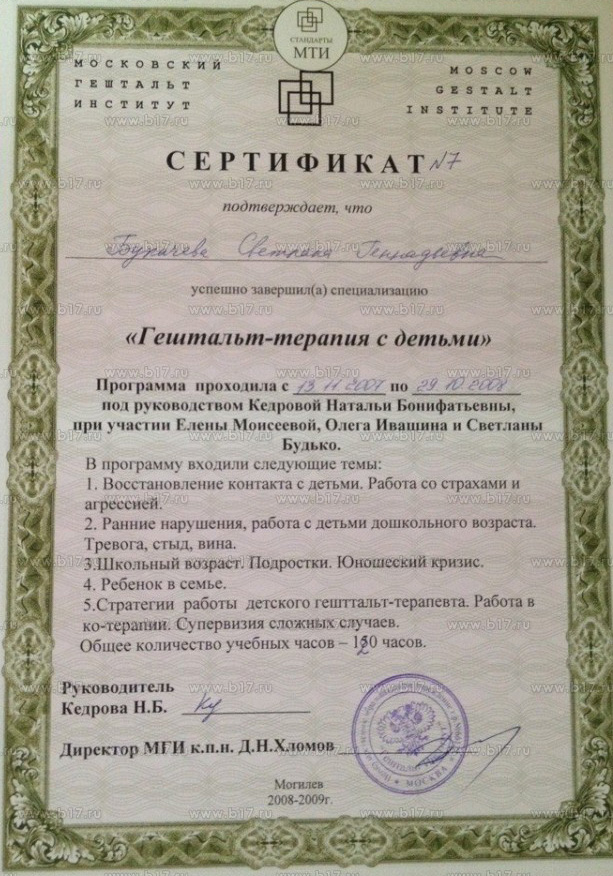 СТАНДАРТЫ
МГИ
МОСКОВСКИЙ
ГЕШТАЛЬТ
ИНСТИТУТ
MOSCOW
GESTALT
INSTITUTE
СЕРТИФИКАТ N7
подтверждает, что
Светлана Геннадьевна
успешно завершил(а) специализацию
«Гештальт-терапия с детьми»
Программа проходила с 13 11 2007 по 29 10 2008
под руководством Кедровой Натальи Бонифатьевны,
при участии Елены Моисеевой, Олега Ивашина и Светланы
Будько.
В программу входили следующие темы:
1. Восстановление контакта с детьми. Работа со страхами и
агрессией.
2. Ранние нарушения, работа с детьми дошкольного возраста.
Тревога, стыд, вина.
3.Школьный возраст. Подростки. Юношеский кризис.
4. Ребенок в семье.
5.Стратегии работы детского гешттальт-терапевта. Работа в
ко-терапии. Супервизия сложных случаев.
Общее количество учебных часов – 120 часов.
Руководитель
Кедрова Н.Б.
Директор МГИ к.п.н. Д.Н.Хломов
МОСКВА
Могилев
2008-2009г.
www.b17.ru